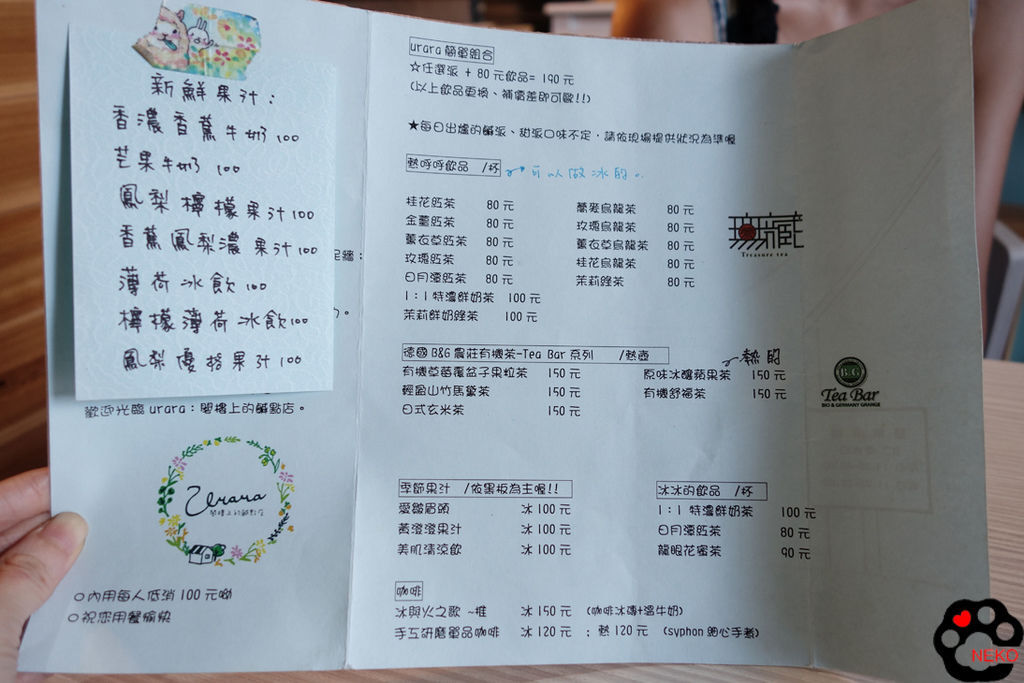 新鮮果汁：
香濃香蕉牛奶 100
芒果牛奶 100
鳳梨檸檬果汁 100
香蕉鳳梨濃果汁 100
薄荷冰飲 100
檸檬薄荷冰飲 100
鳳梨優格果汁 100
歡迎光臨 urara：閣樓上的鹹點店。
urara
閣樓上的鹹點店
○內用每人低消 100 元呦
○祝您用餐愉快
urara 簡單組合
☆任選派 + 80 元飲品= 190 元
(以上飲品更換、補價差即可歐!!)
★每日出爐的鹹派、甜派口味不定，請依現場提供狀況為準喔
熱呼呼飲品 /杯 可以做冰的。
桂花紅茶 80 元
金萱紅茶 80 元
薰衣草紅茶 80 元
玫瑰紅茶 80 元
日月潭紅茶 80 元
1：1 特濃鮮奶茶 100 元
茉莉鮮奶綠茶 100 元
蕎麥烏龍茶 80 元
玫瑰烏龍茶 80 元
薰衣草烏龍茶 80 元
桂花烏龍茶 80 元
茉莉綠茶 80 元
Treasure tea
德國 B&G 農莊有機茶-Tea Bar 系列 /熱壺 熱的
有機草莓覆盆子果粒茶 150 元
輕盈山竹馬黛茶 150 元
日式玄米茶 150 元
原味冰釀蘋果茶 150 元
有機舒福茶 150 元
B&G
Tea Bar
BIO & GERMANY GRANGE
季節果汁 /依黑板為主喔!!
愛皺眉頭 冰 100 元
黃澄澄果汁 冰 100 元
美肌清涼飲 冰 100 元
冰冰的飲品 /杯
1：1 特濃鮮奶茶 100 元
日月潭紅茶 80 元
龍眼花蜜茶 90 元
咖啡
冰與火之歌 ~推 冰 150 元 (咖啡冰磚+溫牛奶)
手工研磨單品咖啡 冰 120 元 ；熱 120 元 (syphon 細心手煮)
NEKO